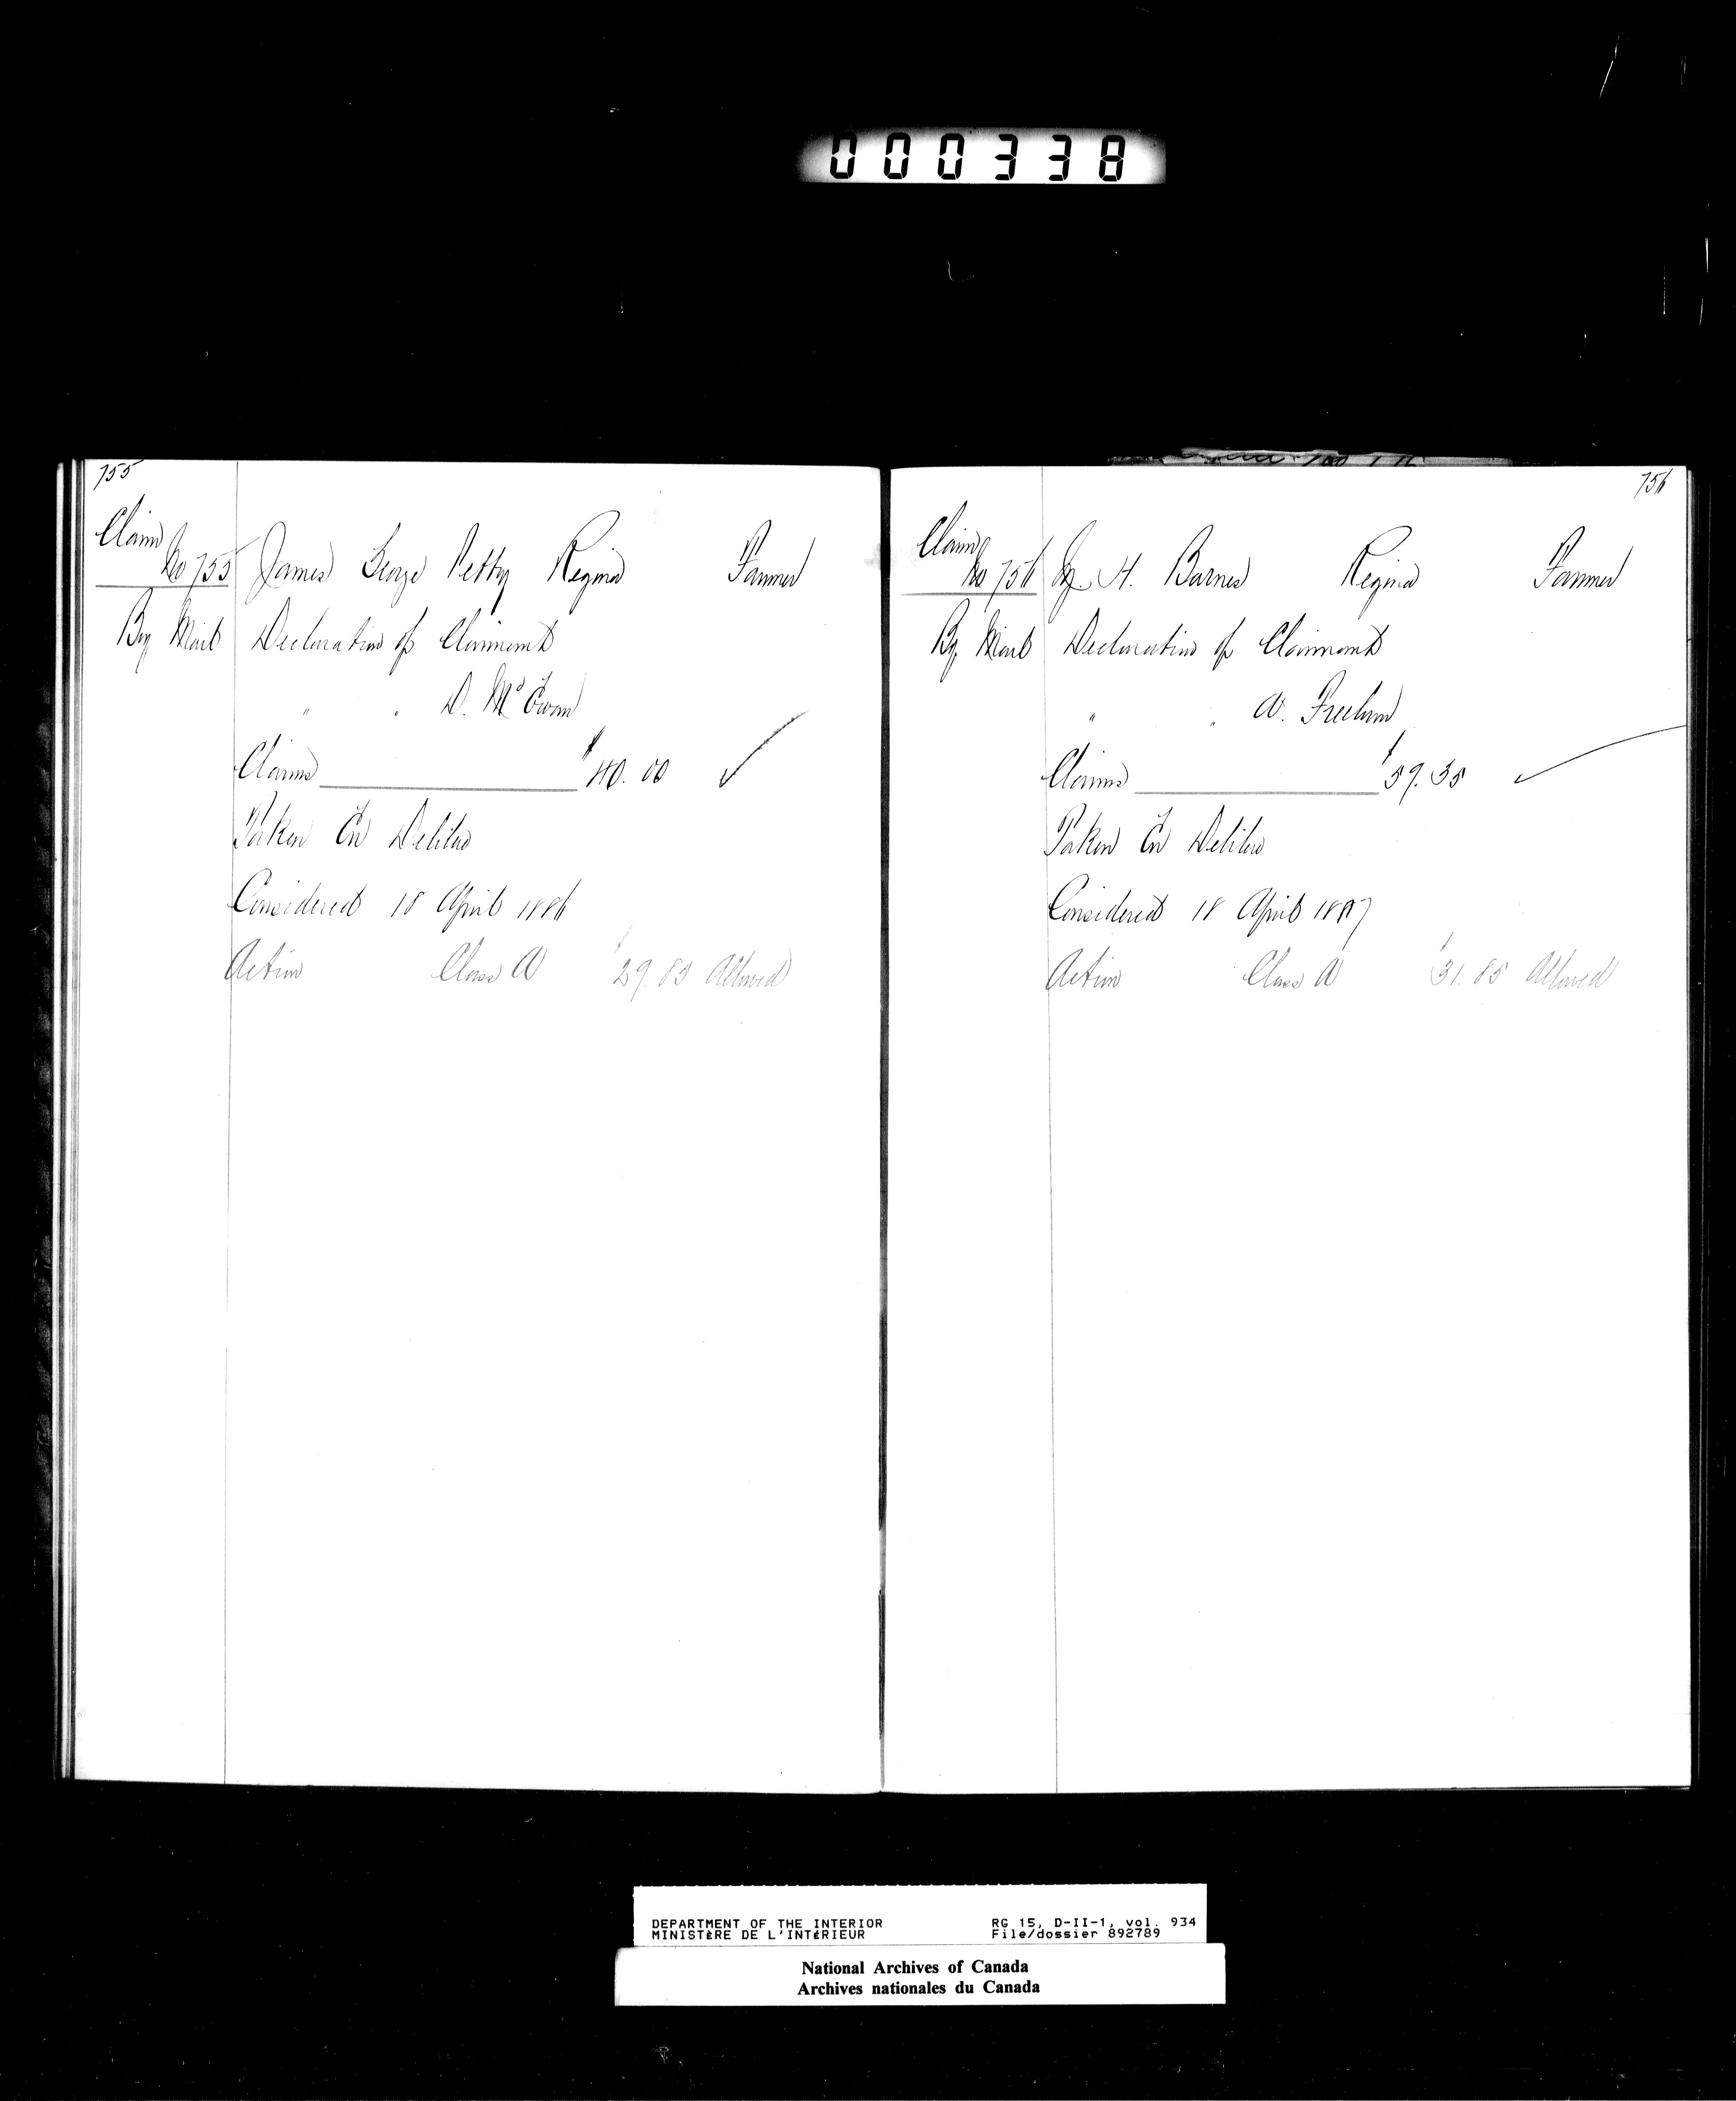 000338
755
Claim
No 755 James George Petty Regina Farmer
By Mail Declaration of Claimant
" " D. McEwan
Claims $40.00 ✓
Taken En Delibee
Considered 18 April 1886
Action Class A $29.85 Allowed
756
Claim
No 756 H. Barnes Regina Farmer
By Mail Declaration of Claimant
" " A.
Claims $59.35 ✓
Taken En Delibee
Considered 18 April 1887
Action Class A $31.85 Allowed
DEPARTMENT OF THE INTERIOR RG 15, D-II-1, vol. 934
MINISTÈRE DE L'INTÉRIEUR File/dossier 892789
National Archives of Canada
Archives nationales du Canada